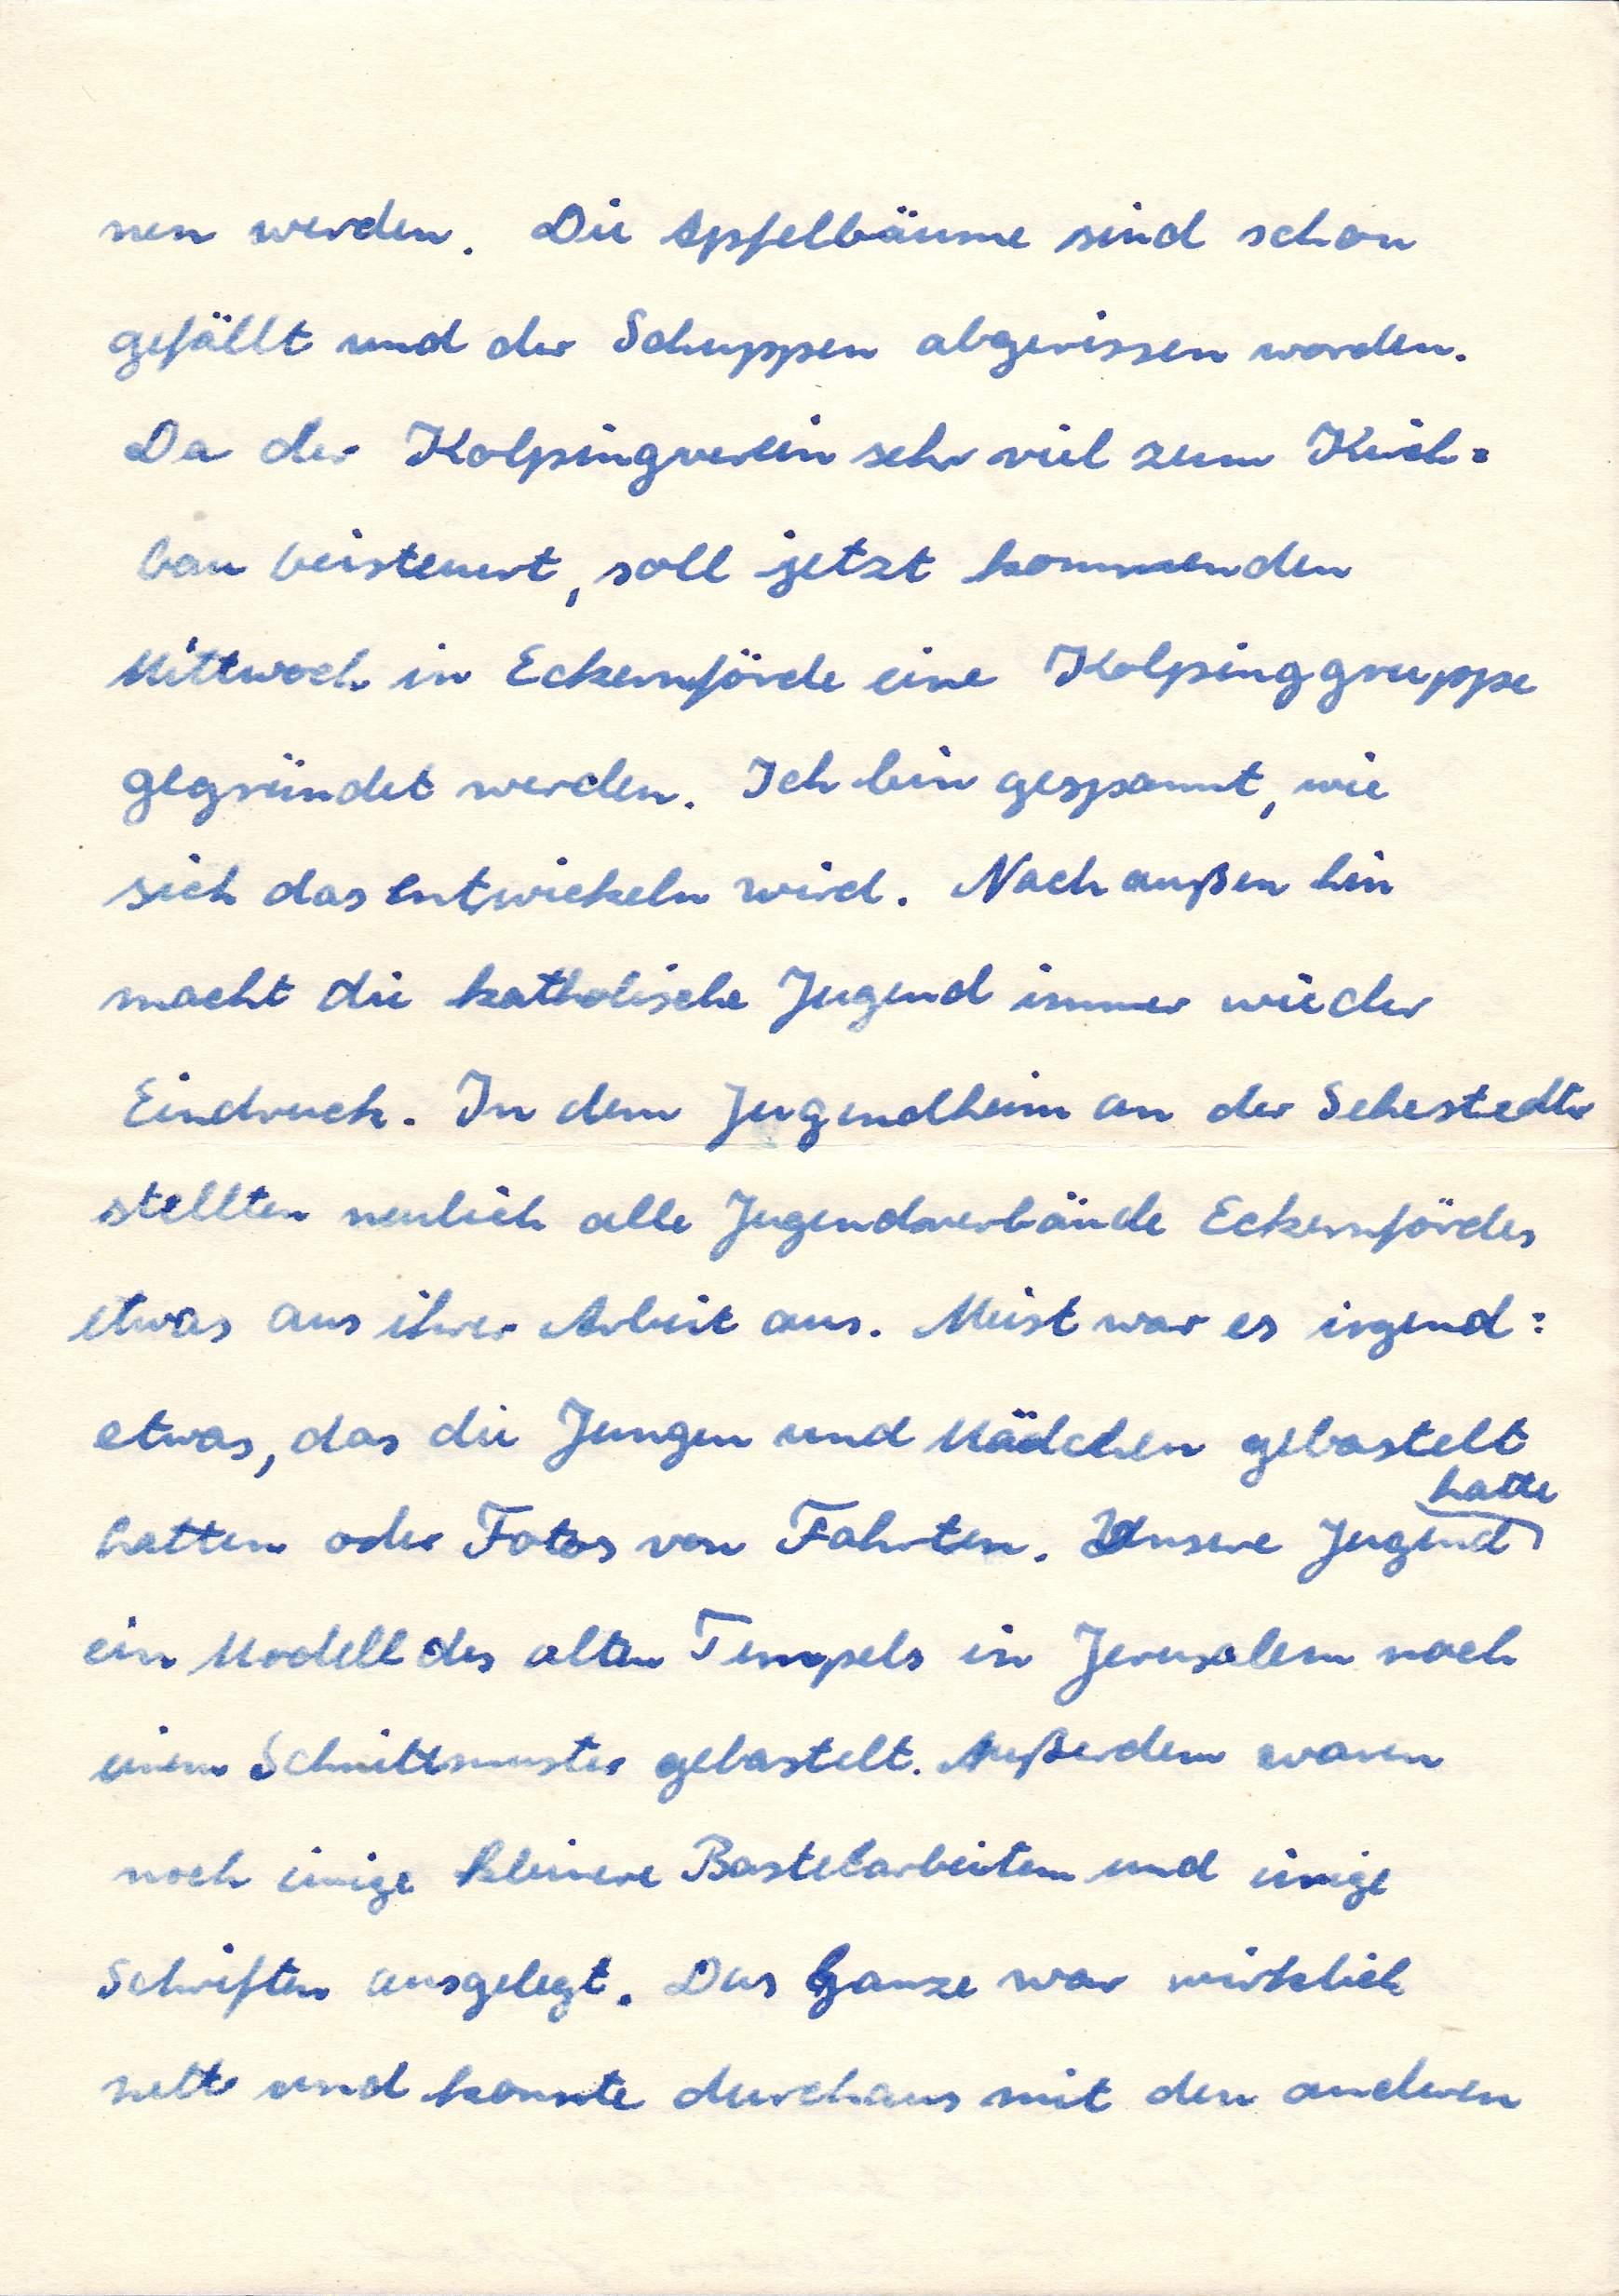 nen werden. Die Apfelbäume sind schon
gefällt und der Schuppen abgerissen worden.
Da der Kolpingverein sehr viel zum Kirch=
bau beisteuert, soll jetzt kommenden
Mittwoch in Eckernförde eine Kolpinggruppe
gegründet werden. Ich bin gespannt, wie
sich das entwickeln wird. Nach außen hin
macht die katholische Jugend immer wieder
Eindruck. In dem Jugendheim an der Sehestedtr
stellten neulich alle Jugendverbände Eckernfördes
etwas aus ihrer Arbeit aus. Meist war es irgend=
etwas, das die Jungen und Mädchen gebastelt
hatten oder Fotos von Fahrten. Unsere Jugend hatte
ein Modell des alten Tempels in Jerusalem nach
einem Schnittmuster gebastelt. Außerdem waren
noch einige kleinere Bastelarbeiten und einige
Schriften ausgelegt. Das Ganze war wirklich
nett und konnte durchaus mit den anderen